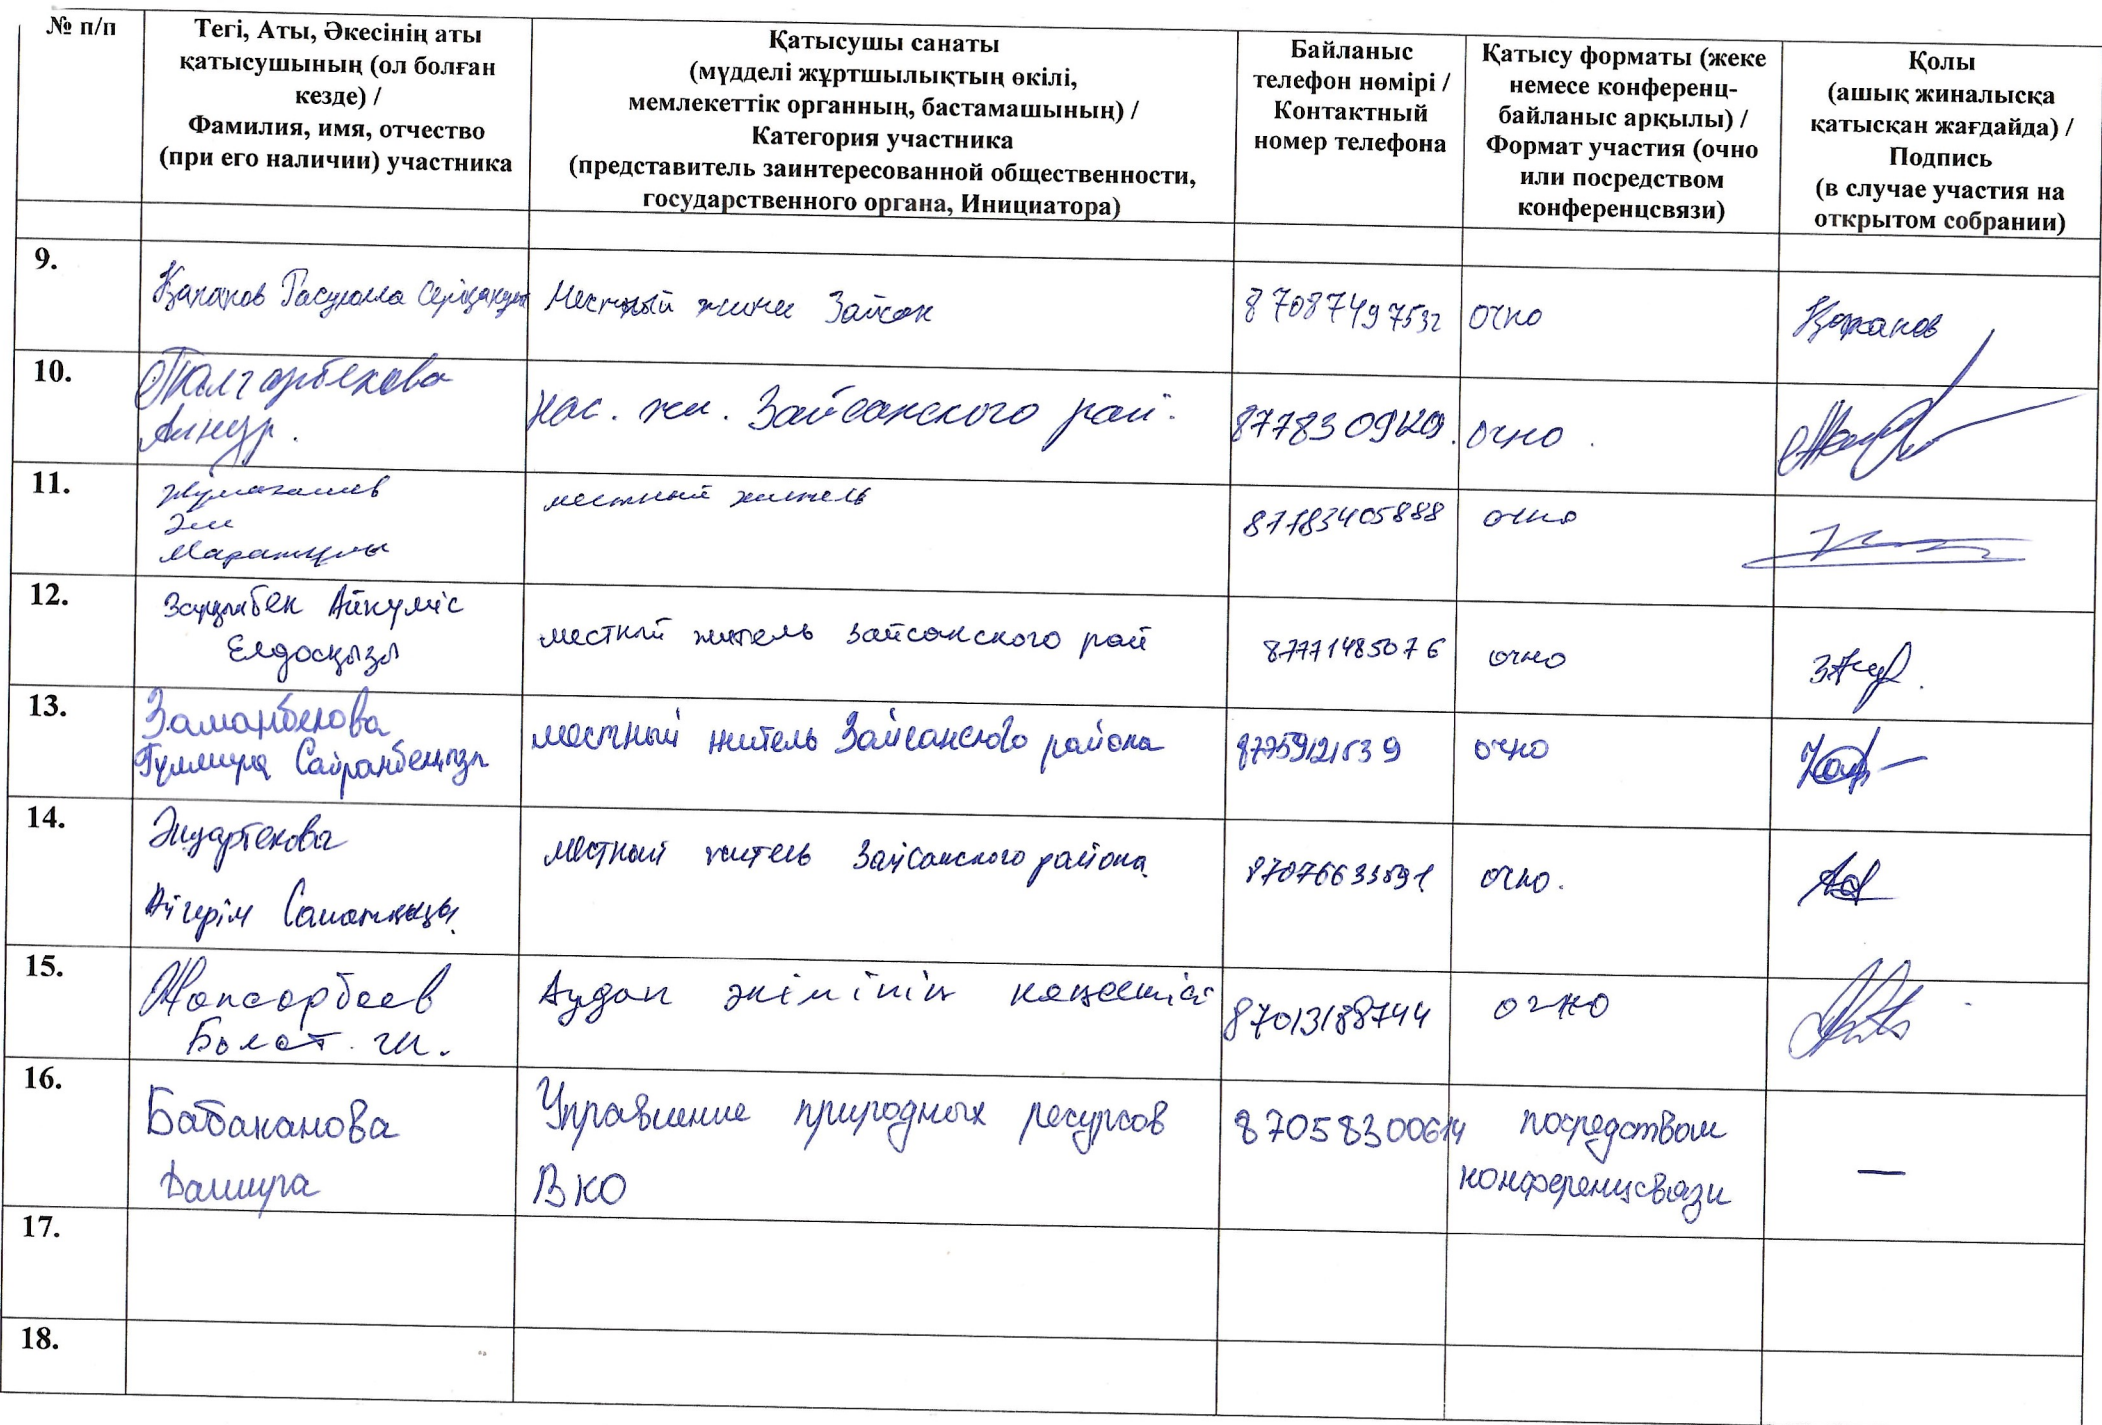 № п/п
Тегі, Аты, Әкесінің аты
қатысушының (ол болған
кезде) /
Фамилия, имя, отчество
(при его наличии) участника
Қатысушы санаты
(мүдделі жұртшылықтың өкілі,
мемлекеттік органның, бастамашының) /
Категория участника
(представитель заинтересованной общественности,
государственного органа, Инициатора)
Байланыс
телефон нөмірі /
Контактный
номер телефона
Қатысу форматы (жеке
немесе конференц-
байланыс арқылы) /
Формат участия (очно
или посредством
конференцсвязи)
Қолы
(ашық жиналысқа
қатысқан жағдайда) /
Подпись
(в случае участия на
открытом собрании)
9.
Расулла
Местный жини Зайсан
87087497532
очно
10.
Талгарбекова
Айнур.
нас. жи. Зайсанского рай.
очно.
11.
Жумагалиев
Маратұлы
местный житель
87783405888
очно
12.
Айкуміс
Елдосқызы
местный житель Зайсанского рай
87771485076
очно
13.
Заманбекова
Гулмира Сайранбекқызы
местный житель Зайсанского района
очно
14.
Айгерім Саматқызы.
местный житель Зайсанского района
очно.
15.
Жапсарбаев
Болат
Аудан әкімінің кеңесшісі
87013188744
очно
16.
Бабаканова
Управление природных ресурсов
ВКО
посредством
конференцсвязи
—
17.
18.